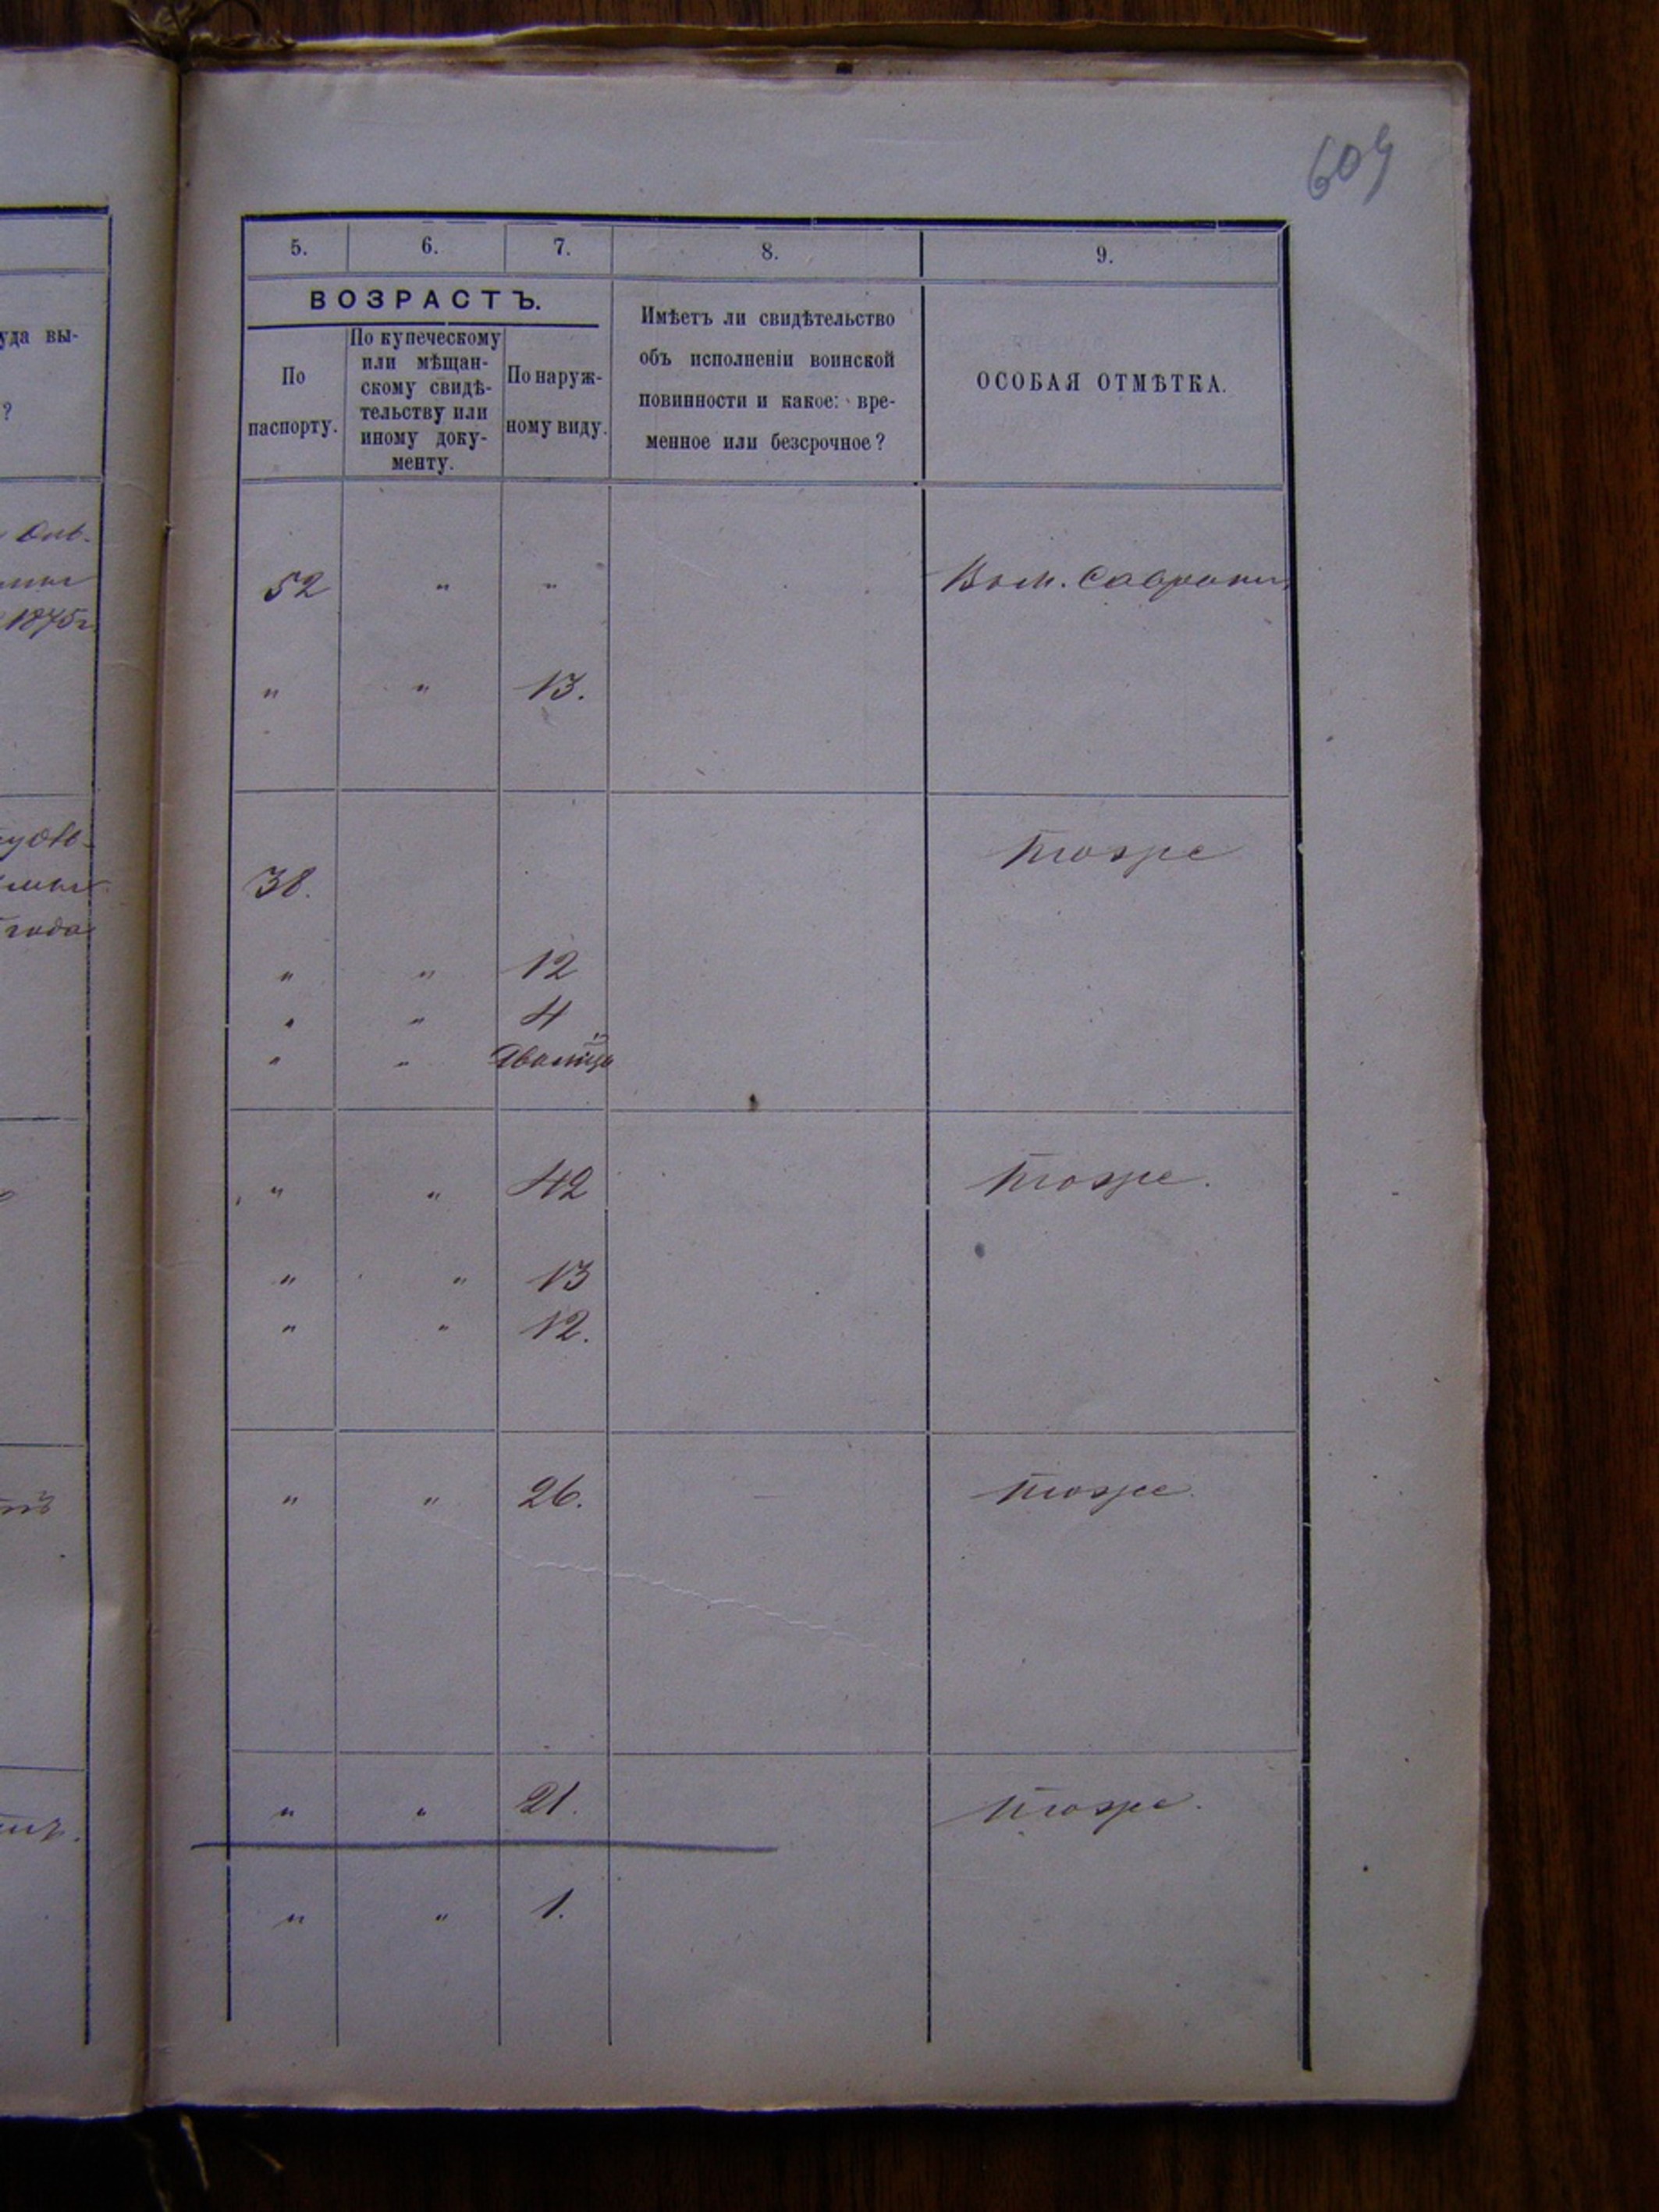 604
5. 6. 7. 8. 9.
ВОЗРАСТЪ.
По
паспорту.
По купеческому
или мѣщан-
скому свидѣ-
тельству или
иному доку-
менту.
По наруж-
ному виду.
Имѣетъ ли свидѣтельство
объ исполненіи воинской
повинности и какое: вре-
менное или безсрочное?
ОСОБАЯ ОТМѢТКА.
уда вы-
?
1875г.
года
52 " "
" " 13.
тоже
38.
" " 12
" " 4
" "
" " 42 тоже.
" " 13
" " 12.
" " 26. тоже.
" " 21. тоже.
" " 1.